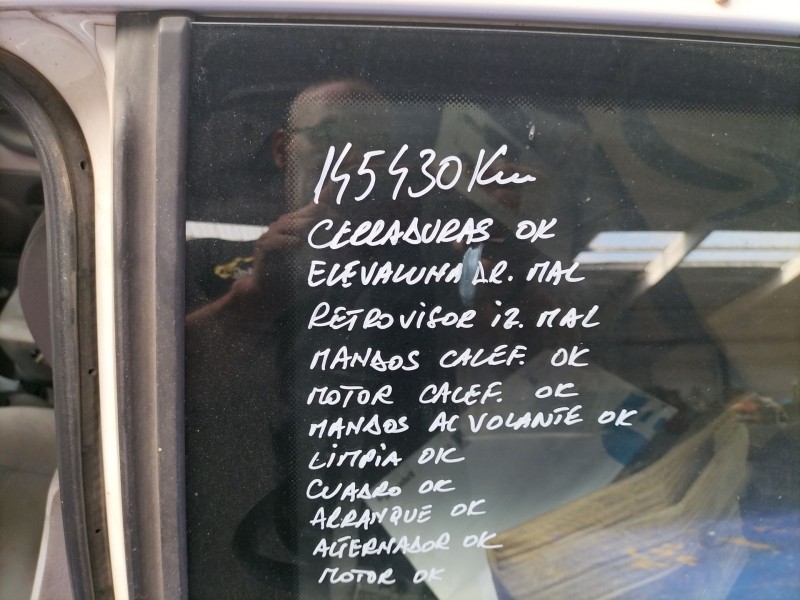 145430 Km
CERRADURAS OK
ELEVALUNA DR. MAL
RETROVISOR iZ. MAL
MANDOS CALEF. OK
MOTOR CALEF. OK
MANDOS AL VOLANTE OK
LIMPIA OK
CUADRO OK
ARRANQUE OK
ALTERNADOR OK
MOTOR OK